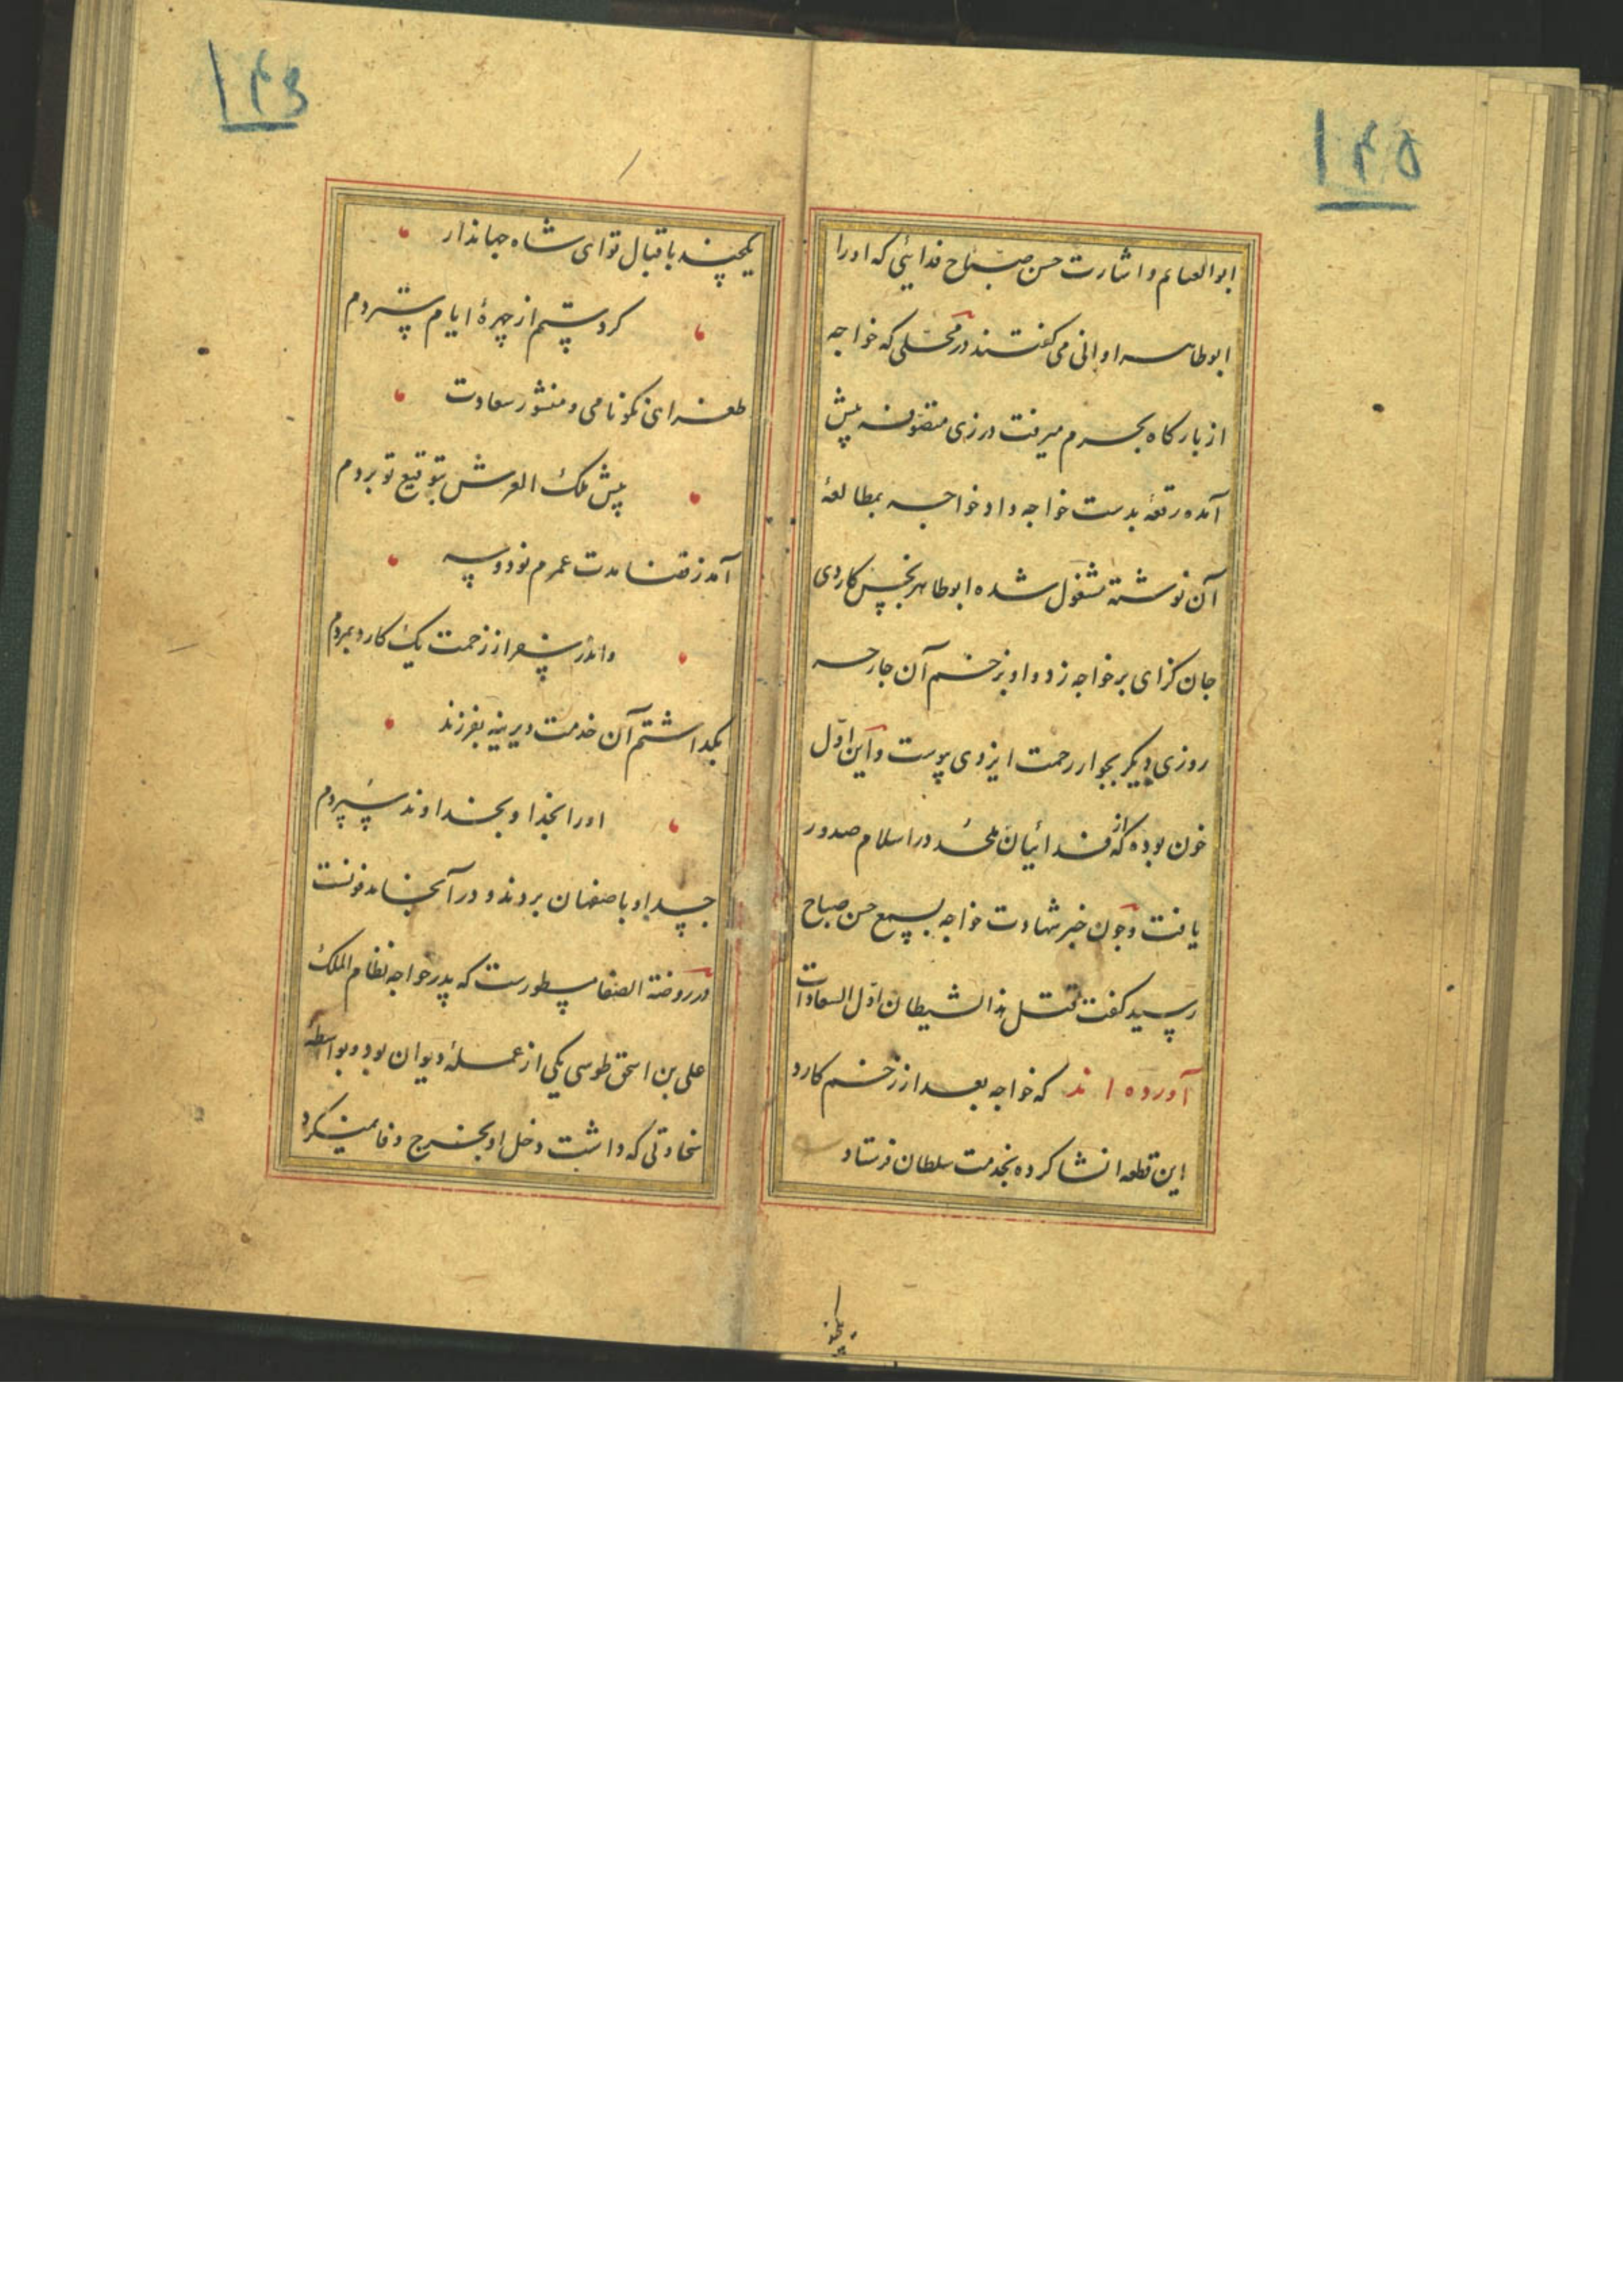 ۱۴۵
ابوالغنایم و اشارت حسن صباح فدائی که او را
ابوطاهر اوانی می گفتند در محلی که خواجه
از بارگاه بحرم میرفت در زی متصوفه پیش
آمده رقعهٔ بدست خواجه داد خواجه بمطالعهٔ
آن نوشته مشغول شده ابوطاهر نجس کاردی
جان گزای بر خواجه زد و او بزخم آن جارحه
روزی دیگر بجوار رحمت ایزدی پیوست و این اول
خون بوده که از فدائیان ملحد در اسلام صدور
یافت و چون خبر شهادت خواجه بسمع حسن صباح
رسید گفت قتل هذا الشیطان اول السعادات
آورده اند که خواجه بعد از زخم کارد
این قطعه انشا کرده بخدمت سلطان فرستاد
یکچند
۱۴۶
یکچند باقبال تو ای شاه جهاندار
گرد ستم از چهرهٔ ایام ستردم
طغرای نکونامی و منشور سعادت
پیش ملک العرش بتوقیع تو بردم
آمد ز قضا مدت عمرم نود و سه
واندر سفر از زحمت یک کارد بمردم
بگذاشتم آن خدمت دیرینه بفرزند
او را بخدا و بخداوند سپردم
جسد او باصفهان بردند و در آنجا مدفونست
در روضة الصفا مسطورست که پدر خواجه نظام الملک
علی بن اسحق طوسی یکی از عملهٔ دیوان بود و بواسطهٔ
سخاوتی که داشت دخل او بخرج وفا نمیکرد